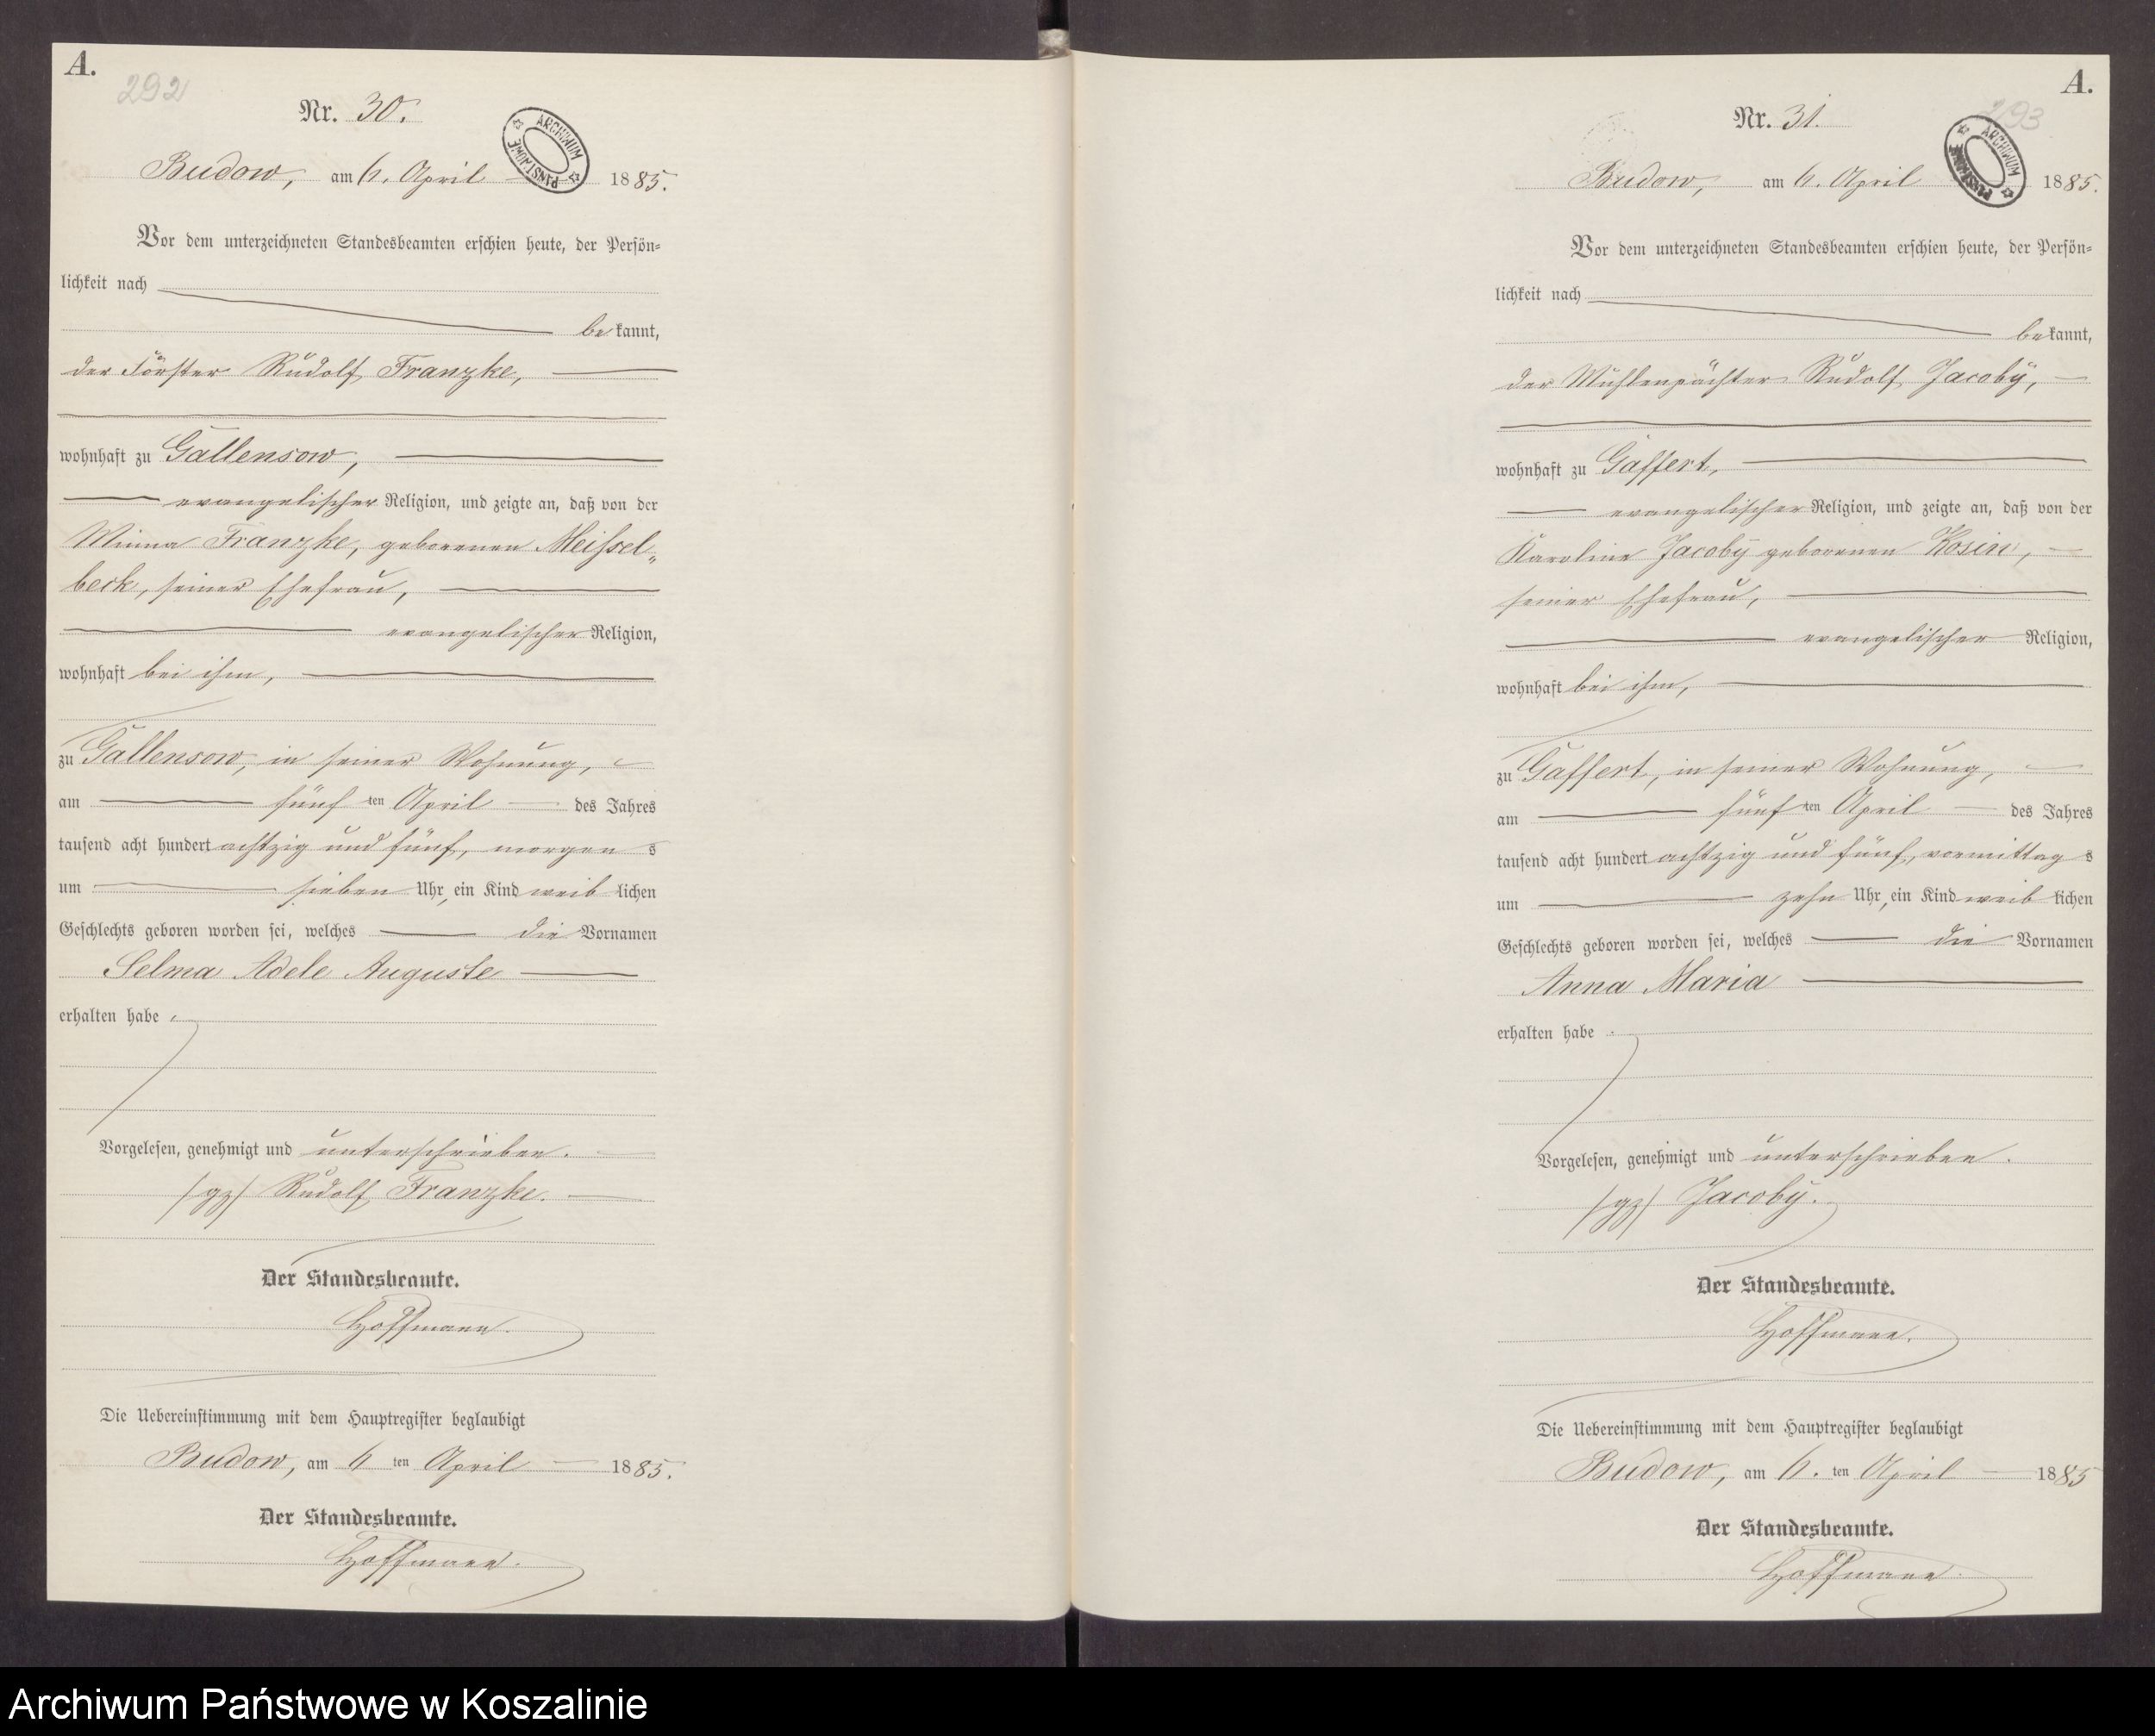 A.
292
Nr. 30.
ARCHIWUM PAŃSTWOWE
Budow, am 6. April 1885.
Vor dem unterzeichneten Standesbeamten erschien heute, der Persön-
lichkeit nach
be kannt,
der Förster Rudolf Franzke,
wohnhaft zu Gallensow,
evangelischer Religion, und zeigte an, daß von der
Minna Franzke, geborenen Meissel-
beck, seiner Ehefrau,
evangelischer Religion,
wohnhaft bei ihm,
zu Gallensow, in seiner Wohnung,
am fünf ten April des Jahres
tausend acht hundert achtzig und fünf, morgen s
um sieben Uhr, ein Kind weib lichen
Geschlechts geboren worden sei, welches die Vornamen
Selma Adele Auguste
erhalten habe.
Vorgelesen, genehmigt und unterschrieben.
/gz/ Rudolf Franzke.
Der Standesbeamte.
Hoffmann.
Die Uebereinstimmung mit dem Hauptregister beglaubigt
Budow, am 6 ten April 1885.
Der Standesbeamte.
Hoffmann.
A.
293
Nr. 31.
ARCHIWUM PAŃSTWOWE
Budow, am 6. April 1885.
Vor dem unterzeichneten Standesbeamten erschien heute, der Persön-
lichkeit nach
be kannt,
der Mühlenpächter Rudolf Jacoby,
wohnhaft zu Gaffert,
evangelischer Religion, und zeigte an, daß von der
Karoline Jacoby geborenen Kosin,
seiner Ehefrau,
evangelischer Religion,
wohnhaft bei ihm,
zu Gaffert, in seiner Wohnung,
am fünf ten April des Jahres
tausend acht hundert achtzig und fünf, vormittag s
um zehn Uhr, ein Kind weib lichen
Geschlechts geboren worden sei, welches die Vornamen
Anna Maria
erhalten habe.
Vorgelesen, genehmigt und unterschrieben.
/gz/ Jacoby.
Der Standesbeamte.
Hoffmann.
Die Uebereinstimmung mit dem Hauptregister beglaubigt
Budow, am 6. ten April 1885
Der Standesbeamte.
Hoffmann.
Archiwum Państwowe w Koszalinie